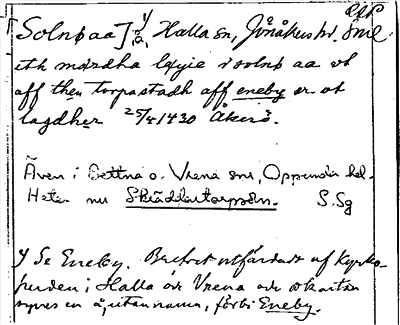 Solnþ aa] y å, Halla sn, Jönåkers hd, Sml.
eth mærdha læyie i solnþ aa vt
aff then torpastadh aff eneby er vt
lagdher 25/4 1430 Åkerö.
Även i Bettna o. Vrena snr, Oppunda hd.
Heter nu Skräddartorpsån. S. Sg
y Se Eneby. Brevet utfärdat af kyrko-
herden i Halla och Vrena och å kartan
synes en å, utan namn, förbi Eneby.